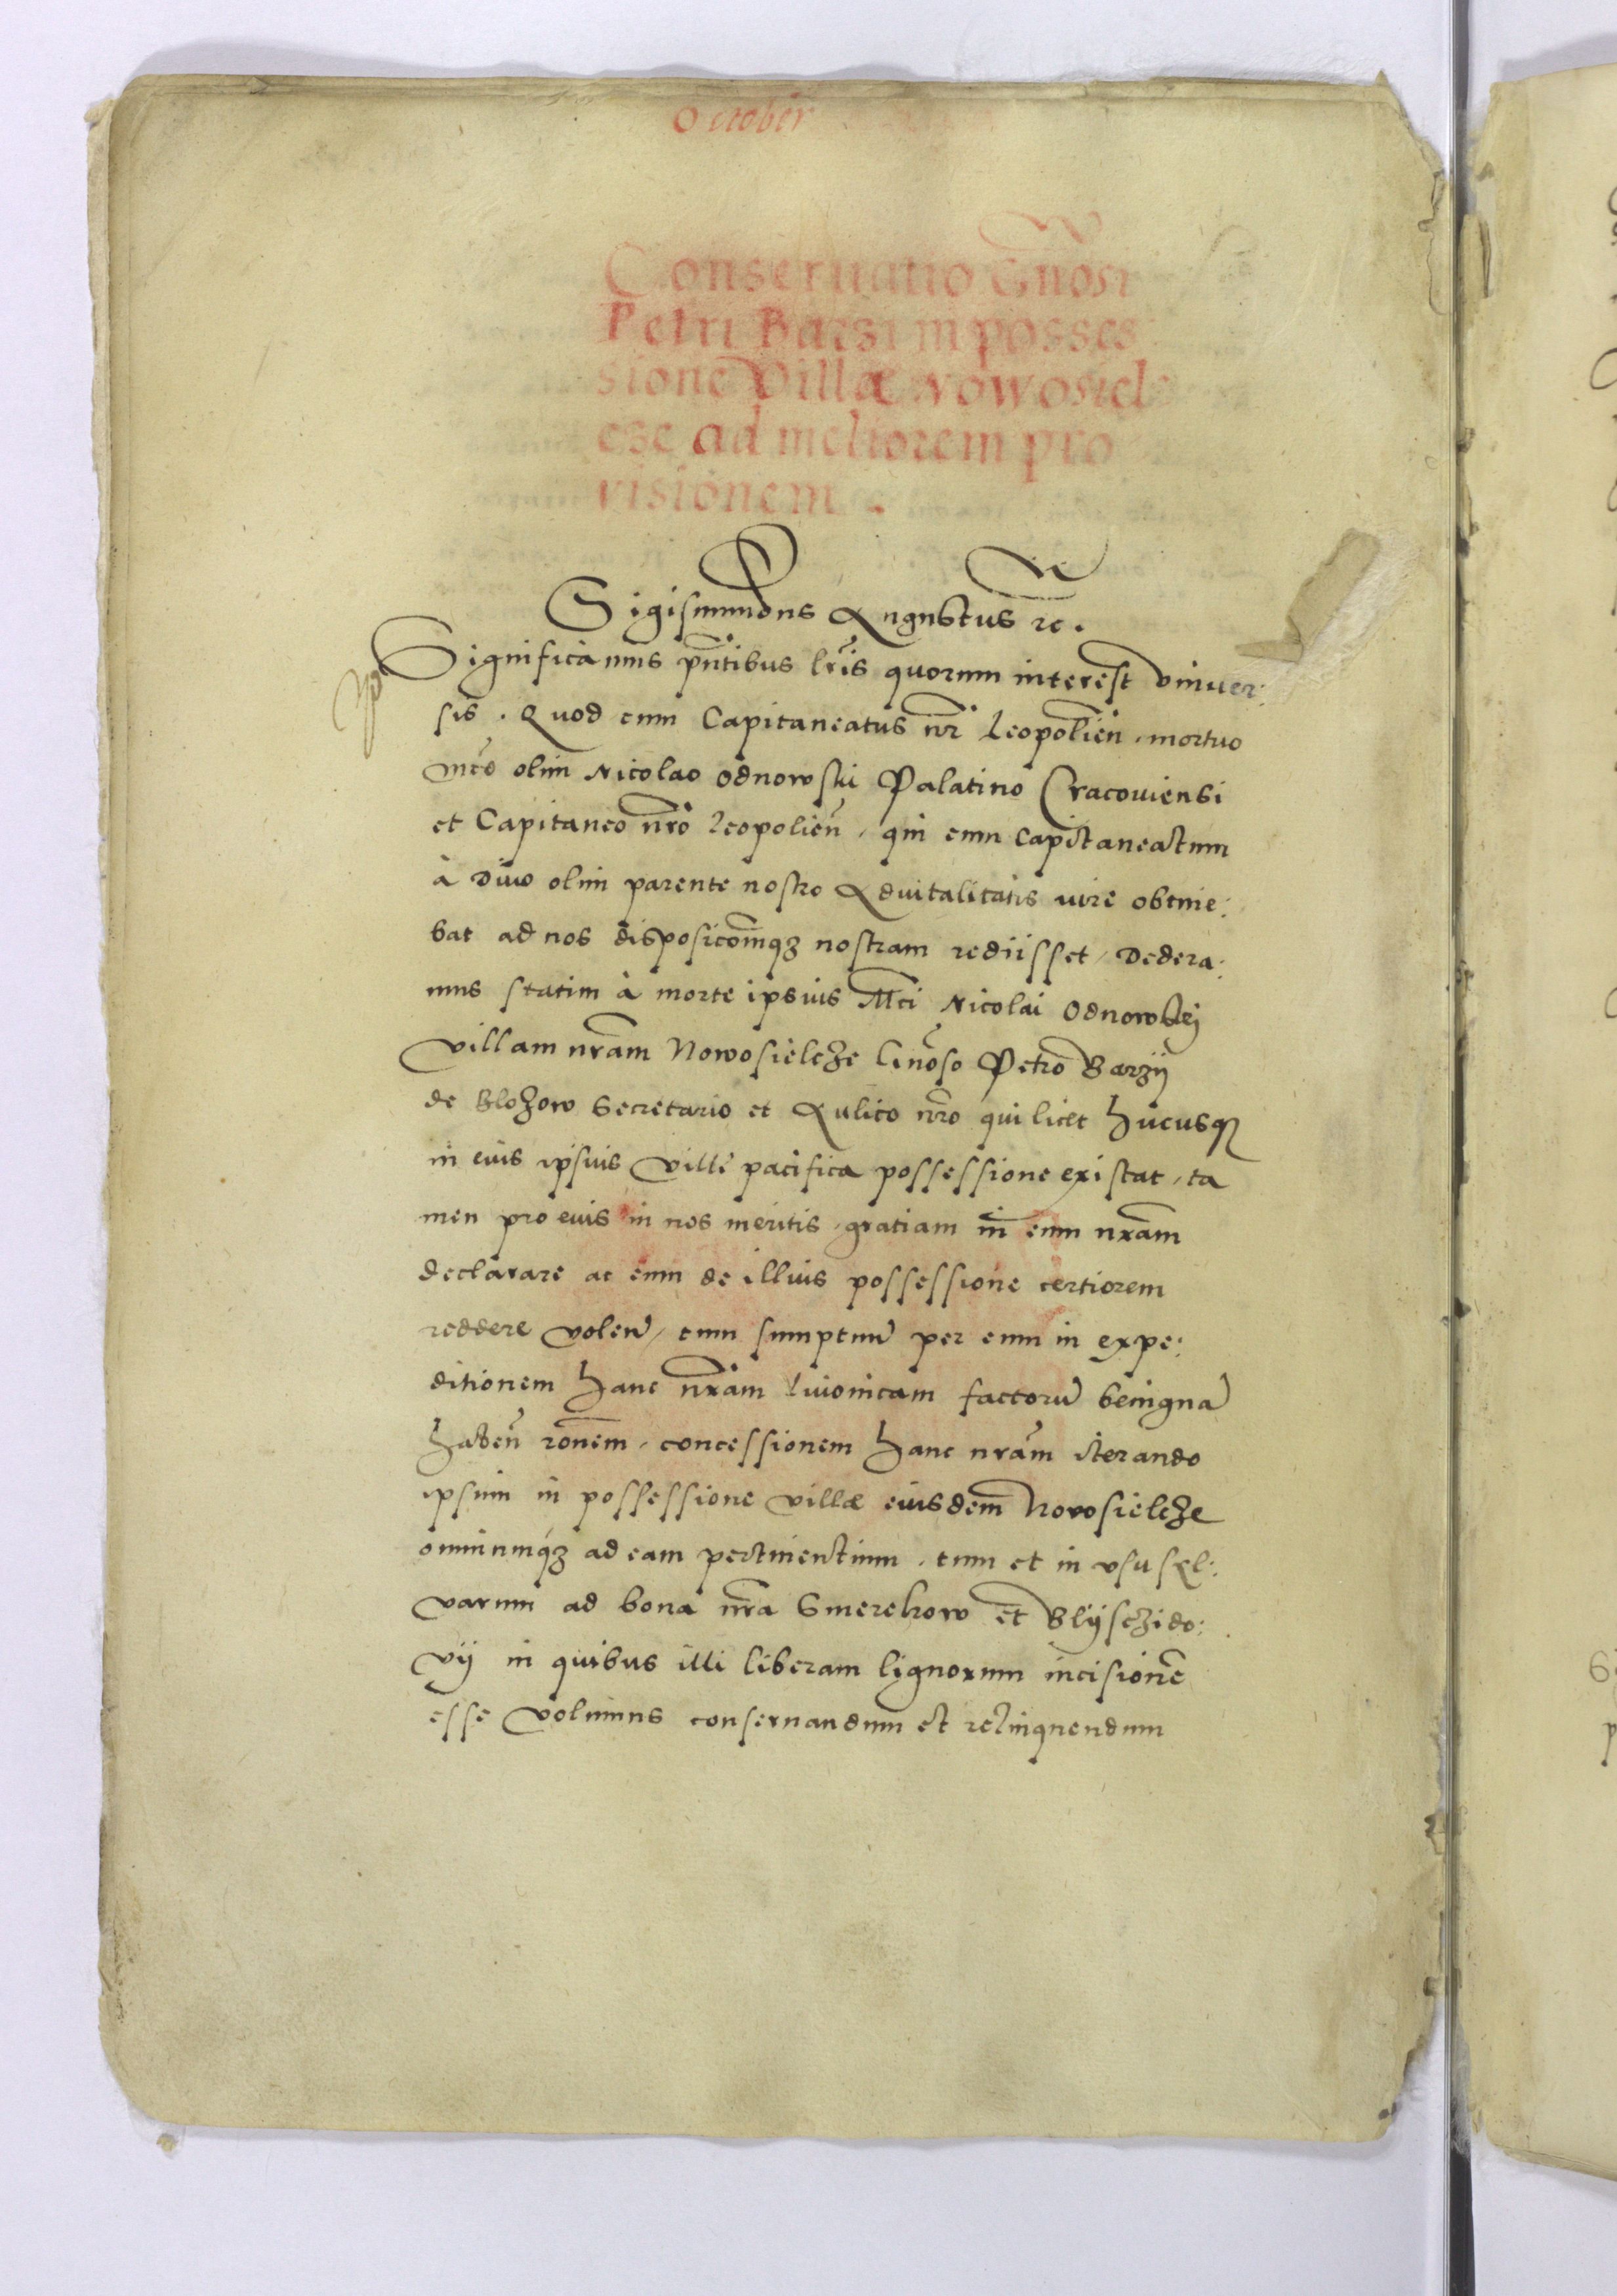 October
Conseruatio Gñosi
Petri Barzi in posses
sione Villæ Nowosiel
cze ad meliorem pro
visionem.
Sigismundus Augustus rc.
Significamus pñtibus lr̃is quorum interest vniuer:
sis. Quod cum Capitaneatus nr̃ Leopolien̄, mortuo
mc̃o olim Nicolao Odnowski Palatino Cracouiensi
et Capitaneo nr̃o Leopolien̄, qui eum Capitaneatum
à Diuo olim parente nostro Aduitalitatis iure obtine:
bat ad nos disposicōmq3 nostram rediisset, Dedera:
mus statim à morte ipsius Mc̃i Nicolai Odnowskij
villam nr̃am Nowosielcze Gñoso Petro Barzij
de Blozow Secretario et Aulico nr̃o qui licet hucusq3
in eius ipsius Ville pacifica possessione existat, ta
men pro euis in nos meritis, gratiam in̄ eum nr̃am
declarare ac eum de illius possessione certiorem
reddere volen̄, tum sumptuū per eum in expe:
ditionem hanc nr̃am Liuonicam factorū benignā
haben̄ rōnem, concessionem hanc nr̃am iterando
ipsum in possessione villæ eiusdem Nowosielcze
omniumq́3 ad eam pertinentium, tum et in vsu syl:
varum ad bona nr̃a Smerekow et Blijschido:
vij in quibus illi liberam lignorum incisionē
esse volumus conseruandum et relinquendum